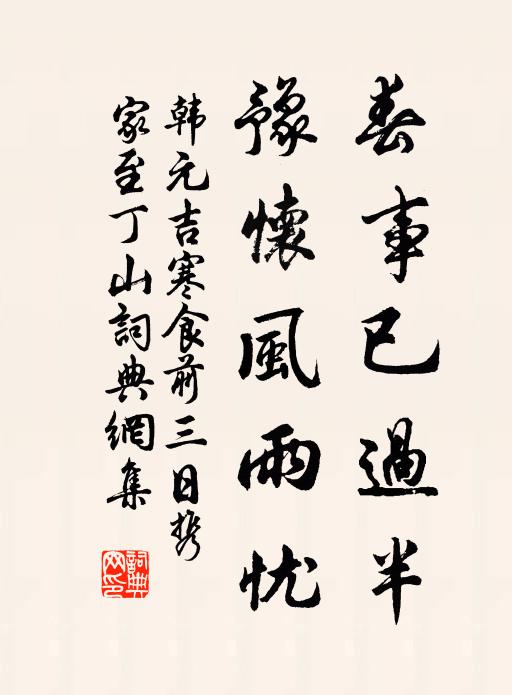 春事已過半
豫懷風雨忧
韩元吉寒食前三日携
家至丁山詞典網集
詞典
网印